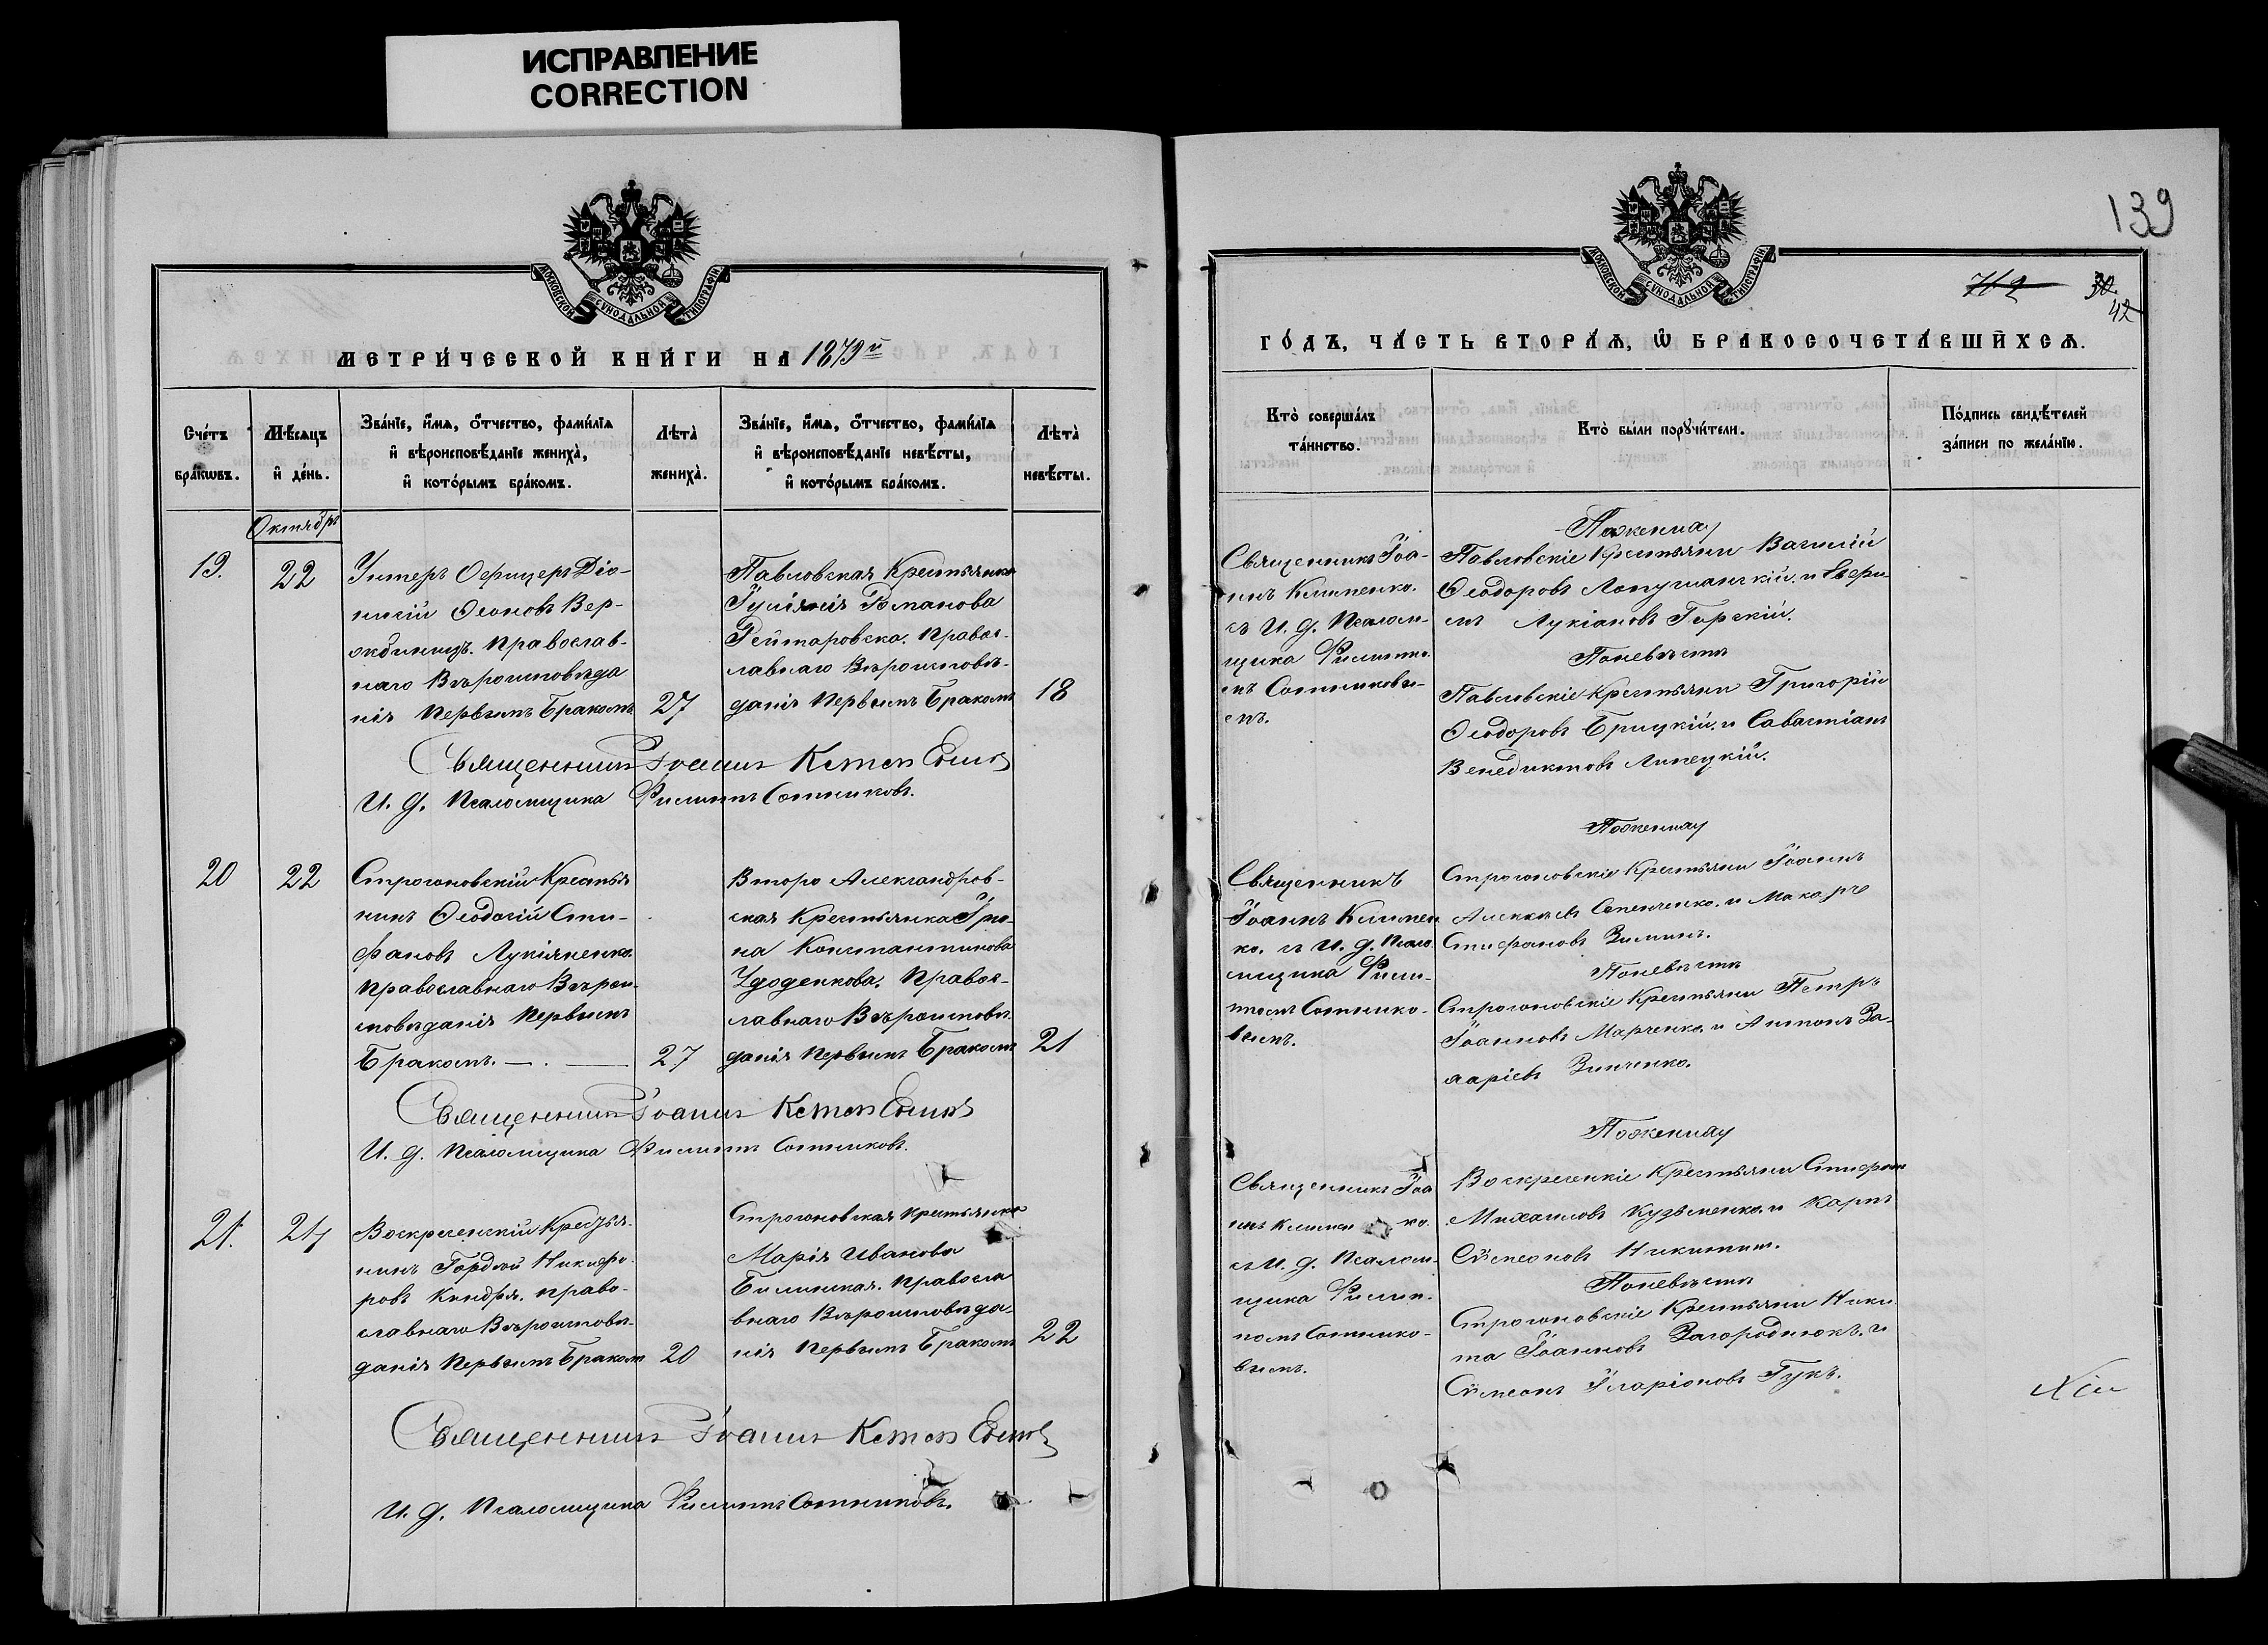 ИСПРАВЛЕНИЕ
CORRECTION
МОСКОВСКОЙ СУНОДАЛЬНОЙ ТИПОГРАФІИ
МЕТРИ́ЧЕСКОЙ КНИ́ГИ НА 1879й
Сче́тъ бра́кѡвъ.
Мѣ́сяцъ и де́нь.
Зва́нїе, и́мѧ, о́тчество, фами́лїѧ и вѣроисповѣ́данїе жениха̀, и кото́рымъ бра́комъ.
Лѣта̀ жениха̀.
Зва́нїе, и́мѧ, о́тчество, фами́лїѧ и вѣроисповѣ́данїе невѣ́сты, и кото́рымъ бра́комъ.
Лѣта̀ невѣ́сты.
Октябрь
19.
22
Унтеръ Офицеръ Діо-
нисій Ѳеоновъ Вер-
Православ-
наго Вѣроисповѣда
нія Первымъ Бракомъ
27
Павловская Крестьянка
Іуліянія Романова
Рейтаровска. Правос-
лавнаго Вѣроисповѣ-
данія Первымъ Бракомъ
18
Священникъ Іоаннъ
И. д. Псаломщика Филиппъ Сотниковъ.
20
22
Строгоновскій Крестья
нинъ Ѳеодосій Сти-
фановъ Лукіяненко.
Православнаго Вѣрои-
сповѣданія Первымъ
Бракомъ.
27
Второ Александров-
ская Крестьянка Ири-
на Константинова
Удоденкова. Правос-
лавнаго Вѣроисповѣ-
данія Первымъ Бракомъ
21
Священникъ Іоаннъ
И. д. Псаломщика Филиппъ Сотниковъ.
21.
24
Воскресенскій Крестья-
нинъ Гордѣй Никифо-
ровъ Киндря. право-
славнаго Вѣроисповѣ-
данія Первымъ Бракомъ
20
Строгоновская крестьянка
Марія Иванова
Билицкая. Правосла
внаго Вѣроисповѣда
нія Первымъ Бракомъ
22
Священникъ Іоаннъ
И. д. Псаломщика Филиппъ Сотниковъ.
139
МОСКОВСКОЙ СУНОДАЛЬНОЙ ТИПОГРАФІИ
30.
42
ГО́ДЪ, ЧА́СТЬ ВТОРА́Ѧ, Ѽ БРАКОСОЧЕТА́ВШИХСѦ.
Кто̀ соверша́лъ та́инство.
Кто̀ бы́ли порꙋчи́тели.
По́дпись свидѣ́телей за́писи по жела́нїю.
Священникъ Іоа-
ннъ Клименко.
съ И. д. Псалом-
щика Филиппо-
мъ Сотниковы-
мъ.
По жениху
Павловскіе Крестьяни Василій
Ѳеодоровъ Лопушанскій. и Ефри-
мъ Лукіановъ Горскій.
По невѣстѣ
Павловскіе Крестьяни Григорій
Ѳеодоровъ Брицкій. и Савастіанъ
Венедиктовъ Липецкій.
Священникъ
Іоаннъ Климен
ко. съ И. д. Псало
мщика Фили-
ппомъ Сотнико-
вымъ.
По жениху
Строгоновскіе Крестьяни Іоаннъ
Алексѣевъ и Макаръ
Стифановъ Зиминъ.
По невѣстѣ
Строгоновскіе Крестьяни Петръ
Іоанновъ Марченко. и Антонъ За-
харіевъ Зинченко.
Священникъ Іоа
ннъ Климен ко.
съ И. д. Псалом-
щика Филип-
помъ Сотнико-
вымъ.
По жениху
Воскресенкіе Крестьяни Стифанъ
Михаиловъ Кузьменко. и Карпъ
Сімеоновъ Никитинъ.
По невѣстѣ
Строгоновскіе Крестьяни Ники
та Іоанновъ Загороднюкъ. и
Сімеонъ Іларіоновъ Гукъ.